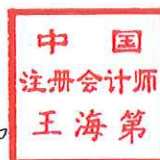 中国
注册会计师
王海第